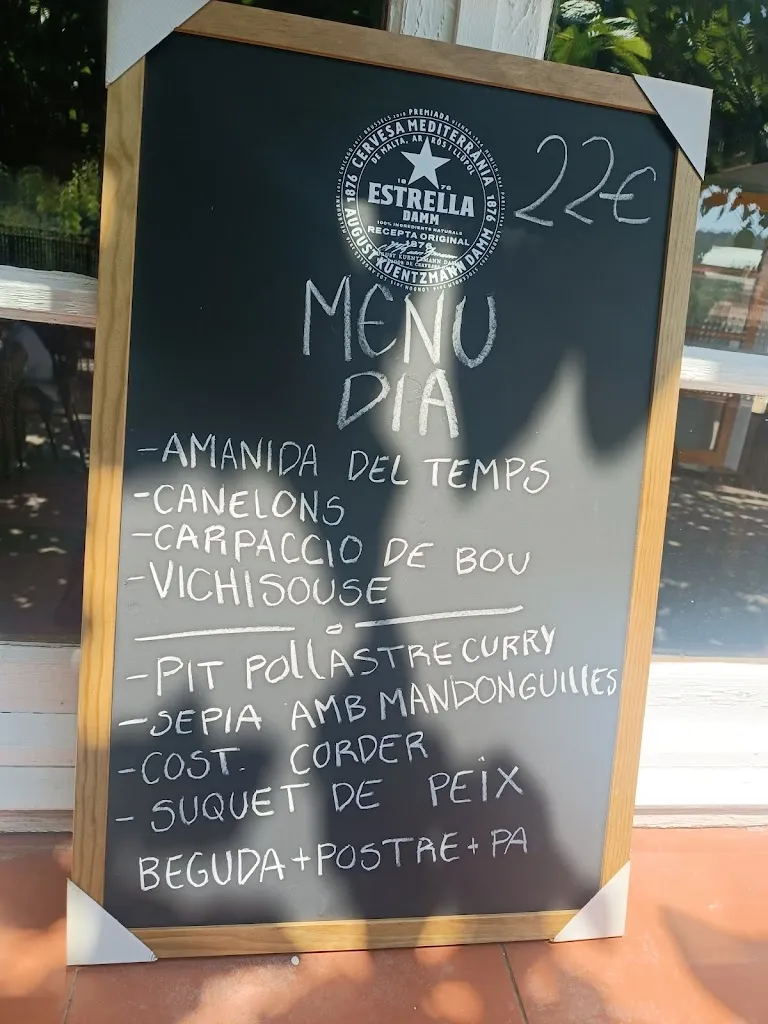 PREMIADA
CERVESA MEDITERRÀNIA
DE MALTA, ARRÒS I LLÚPOL
1876 1876
ESTRELLA
DAMM
100% INGREDIENTS NATURALS
RECEPTA ORIGINAL
1876
AUGUST KUENTZMANN DAMM
22€
MENU
DIA
-AMANIDA DEL TEMPS
-CANELONS
-CARPACCIO DE BOU
-VICHISOUSE
-PIT POLLASTRE CURRY
-SEPIA AMB MANDONGUILLES
-COST. CORDER
-SUQUET DE PEIX
BEGUDA+POSTRE+PA